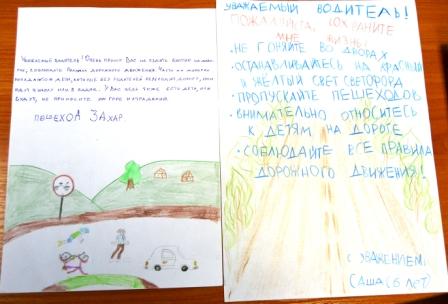 Уважаемый водитель! Очень прошу Вас не ездить быстро
соблюдать правила дорожного движения. Часто
дети, которые без родителей переходят дорогу, они
идут в школу или в садик. У Вас ведь тоже есть дети, или
будут, не приносите им горе и страдания.
ПЕШЕХОД ЗАХАР
УВАЖАЕМЫЙ ВОДИТЕЛЬ!
ПОЖАЛУЙСТА, СОХРАНИТЕ
МНЕ ЖИЗНЬ!
• НЕ ГОНЯЙТЕ ВО ДВОРАХ
• ОСТАНАВЛИВАЙТЕСЬ НА КРАСНЫЙ
И ЖЁЛТЫЙ СВЕТ СВЕТОФОРА
• ПРОПУСКАЙТЕ ПЕШЕХОДОВ
• ВНИМАТЕЛЬНО ОТНОСИТЕСЬ
К ДЕТЯМ НА ДОРОГЕ
• СОБЛЮДАЙТЕ ВСЕ ПРАВИЛА
ДОРОЖНОГО ДВИЖЕНИЯ!
С УВАЖЕНИЕМ,
САША (6 ЛЕТ)